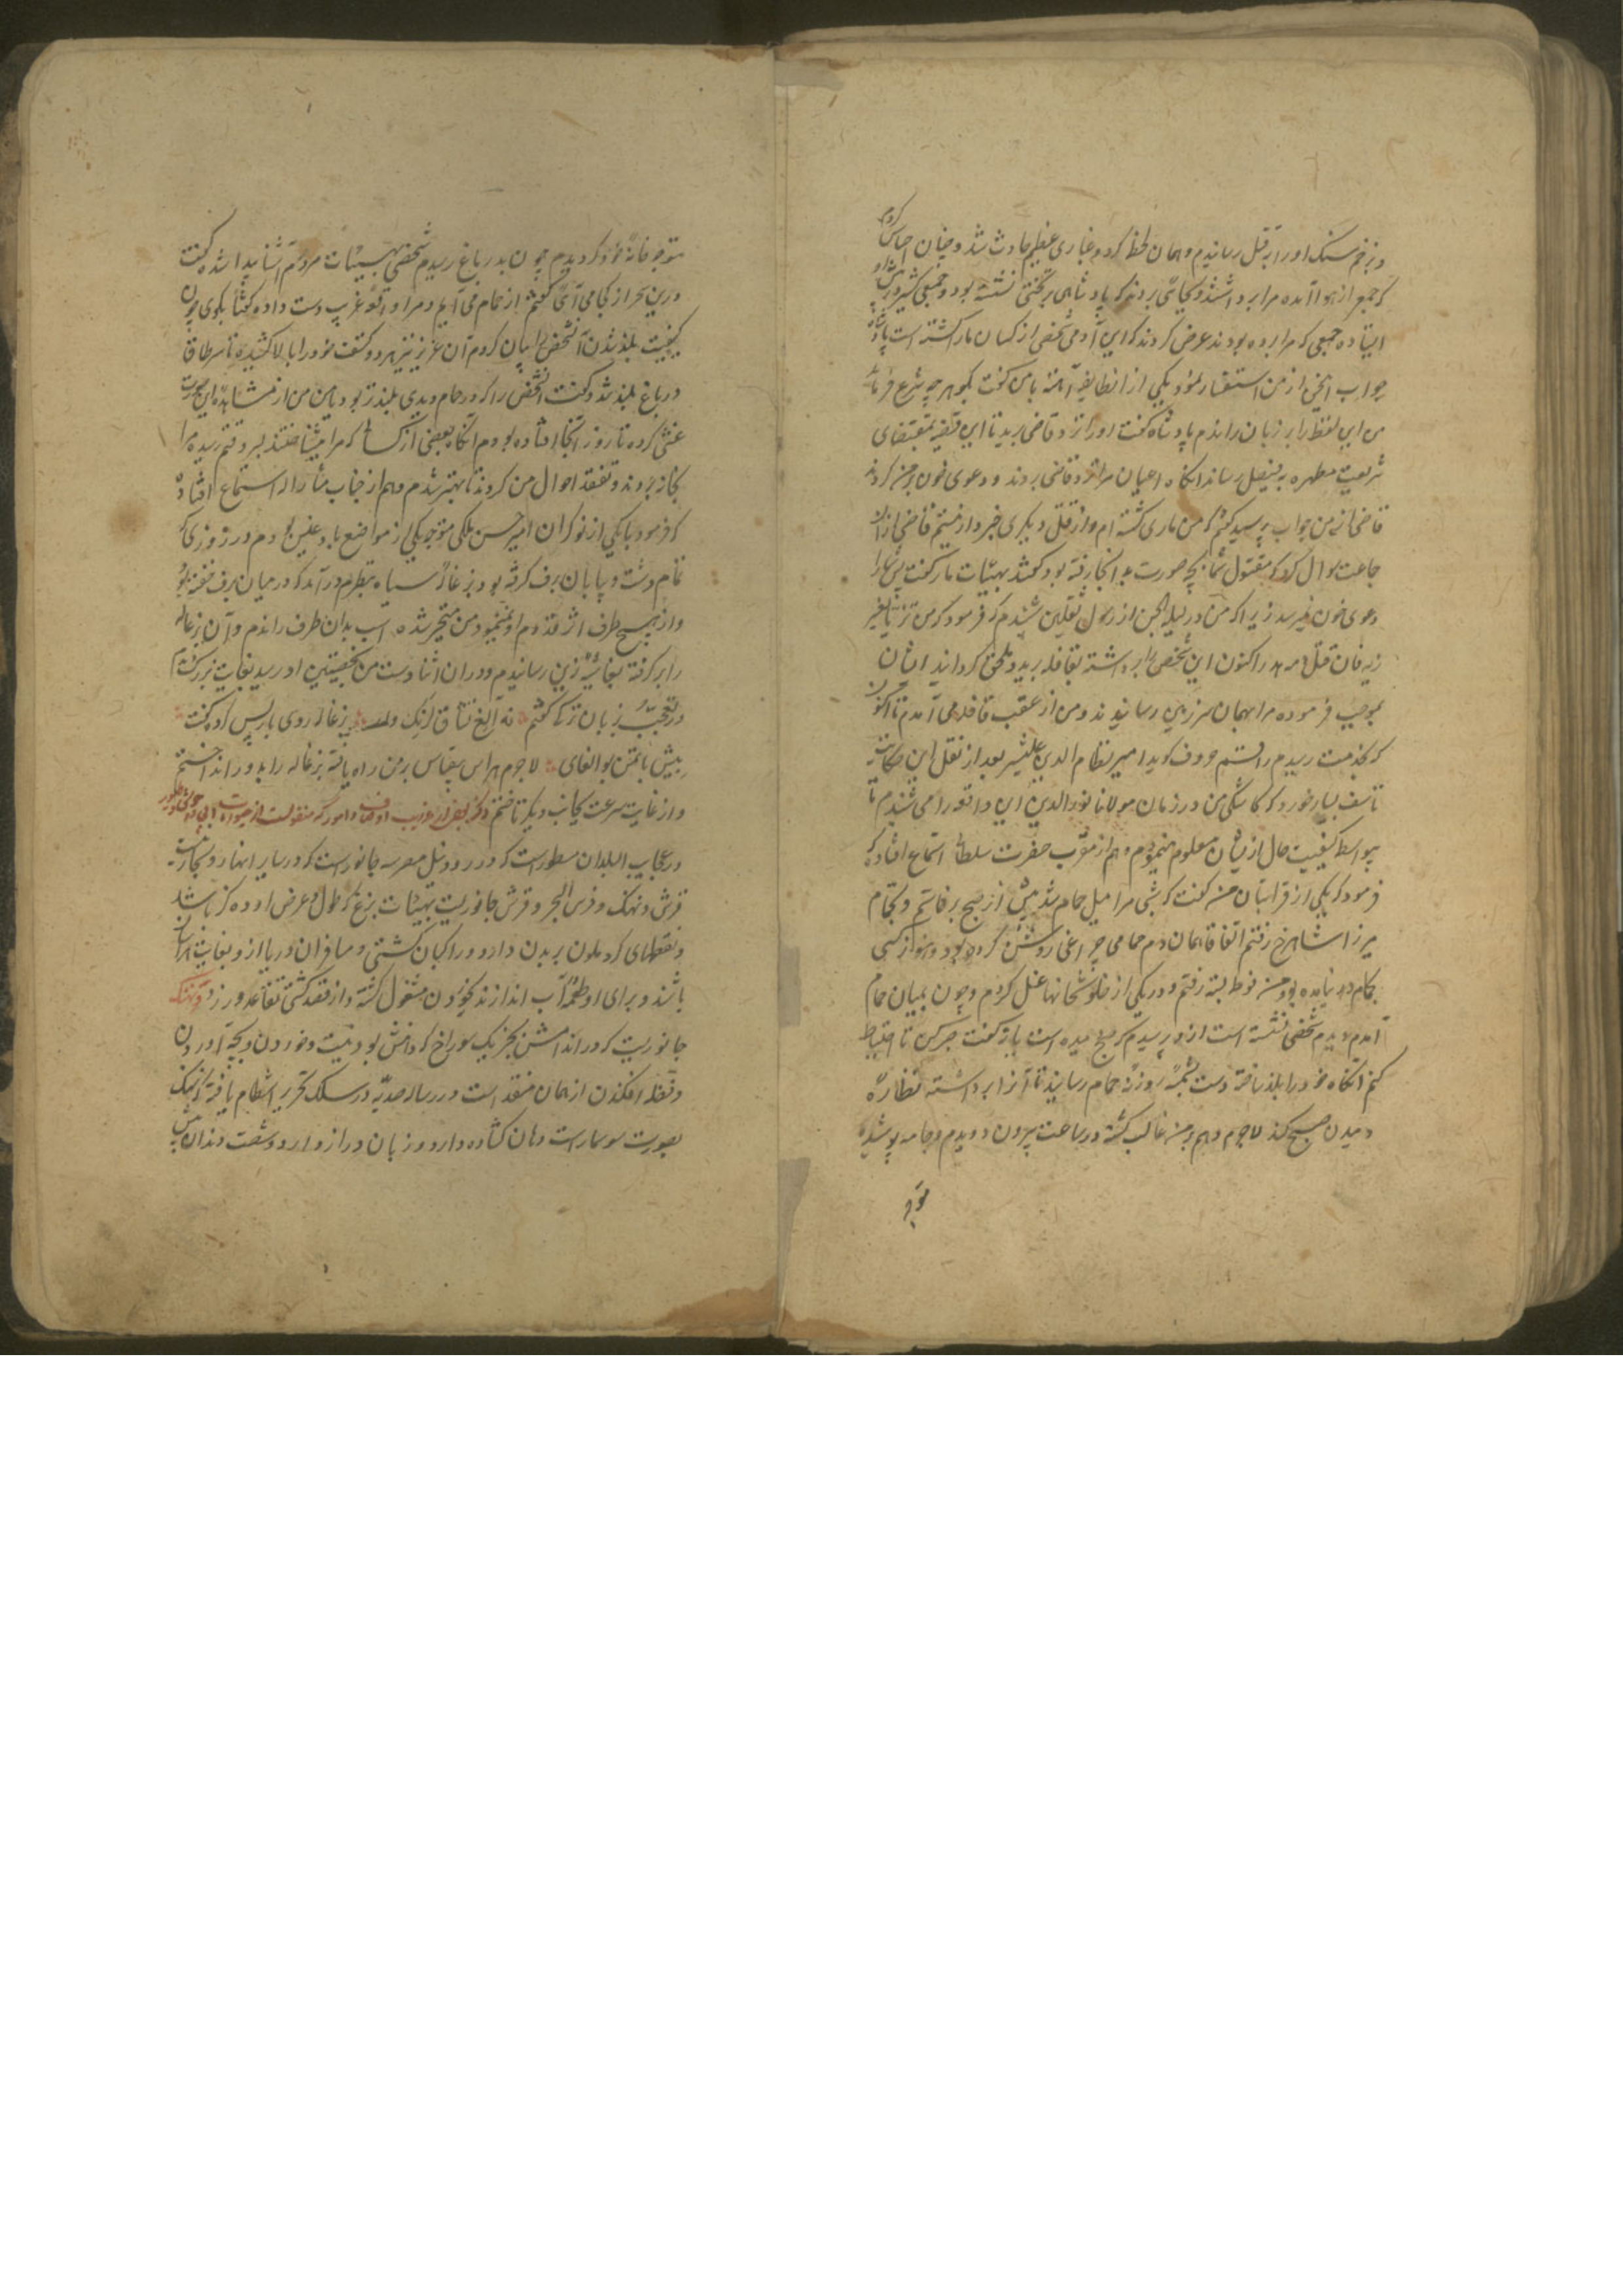 و بزخم سنک او را بر قتل رسانیدم و همان لحظه کرد و غباری عظیم حادث شد و چنان احساس کردم
که جمع از هوا آمده مرا برداشتند و بجائی بردند که پادشاهی بر تختی نشسته بود و جمعی
ایستاده جمعی که مرا برده بودند عرض کردند که این آدمی شخصی از کسان ما را کشته است پادشاه
جواب این از من استفسار نمود یکی از ان طایفه آهسته با من کفت بکو هر چه شرع فرماید
من این لفظ را بر زبان راندم پادشاه کفت او را نزد قاضی برید تا این قضیه بمقتضای
شریعت مطهره بفیصل رساند انکاه اعیان مرا نزد قاضی بردند و دعوی خون بر من کردند
قاضی از من جواب پرسید کفتم که من ماری کشته ام و از قتل دیکری خبر ندارم قاضی از ان
جماعت سوال کرد که مقتول شما بچه صورت بدانجا رفته بود کفتند بهیئات مار کفت پس شما را
دعوی خون نمیرسد زیرا که من در لیله الجن از رسول ثقلین شنیدم که فرمود که من تزیا بغیر
زیه فان قتل دمه هدر اکنون این شخص را برداشته بقافله برید و ملحق کردانید ایشان
بموجب فرموده مرا بهمان سرزمین رسانیدند و من از عقب قافله می آمدم تا اکنون
که بخدمت رسیدم راقم حروف کوید امیر نظام الدین علیشیر بعد از نقل این حکایت
تاسف بسیار خورد که کاشکی من در زمان مولانا نور الدین این واقعه را می شنیدم تا
بیواسطه کیفیت حال از ایشان معلوم مینمودم و هم از مقرب حضرت سلطانی استماع افتاده که
فرمود که یکی از قرابتان من کفت که شبی مرا میل حمام شد پیش از صبح برخاستم و بحمام
میرزا شاهرخ رفتم اتفاقا همان دم حمامی چراغی روشن کرده بود و هنوز کسی
بحمام در نیامده بود من فوطه بسته رفتم و در یکی از خلوتخانها غسل کردم و چون بمیان حمام
آمدم دیدم شخصی نشسته است از و پرسیدم که صبح دمیده است یا نه کفت صبر کن تا احتیاط
کنم انکاه خود را بلند ساخته دست بشیشه روزنه حمام رسانید تا آنرا برداشته نظاره
دمیدن صبح کند لاجرم وهم بر من غالب کشته در ساعت بیرون دویدم و جامه پوشیده
متوجه
متوجه خانه خود کردیدم چون بدر باغ رسیدم شخصی بهیئات مردم آشنا پیدا شده کفت
درین سحر از کجا می آئی کفتم از حمام می آیم و مرا واقعه غریب دست داده کفتا بکوی چون
کیفیت بلند شدن آن شخص را بیان کردم آن عزیز نیز هر دو کتف خود را بالا کشیده تا سر طاق
در باغ بلند شد و کفت آن شخص را که در حمام دیدی بلندتر بود یا من من از مشاهده این صورت
غش کرده تا روز آنجا افتاده بودم انکاه بعضی از کسانی که مرا میشناختند بسر وقتم رسیده مرا
بخانه بردند و تفقد احوال من کردند تا بهتر شدم و هم از جناب مشار الیه استماع افتاده
که فرمود با یکی از نوکران امیر حسن ملکی متوجه یکی از مواضع بادغیس بودم در روزی که
تمام دشت و بیابان برف کرفته بود بزغاله سیاه بنظرم درآمد که در میان برف خفته بود
و از هیچ طرف اثر قدوم او نمینمود من متحیر شده اسب بدان طرف راندم و آن بزغاله
را برکرفته بقاشه زین رسانیدم و دران اثنا دست من بخصیتین او رسید بغایت بزرک
در تعجب بزبان ترکی کفتم نه الغ تشاق لرنک وار بزغاله روی باز پس کرد و کفت
لاجرم هراس بیقیاس بر من راه یافته بزغاله را بدور انداختم
و از غایت سرعت بجانب دیکر تاختم ذکر بعضی از غرایب اوصاف و امور که منقولست از حیوانات آبی و وحوش و طیور
در عجایب البلدان مسطور است که در رود نیل مصر سه جانور است که در سایر انهار و بحار نیست
قرش و نهنک و فرس البحر و قرش جانوریست بهیئات بزغ که طول و عرض او ده کز باشد
و نقطهای کرد ملون بر بدن دارد و راکبان کشتی و مسافران دریا از و بغایت هراسان
باشند و برای او طعمه در آب اندازند تا بخوردن مشغول کشته و از قصد کشتی تقاعد ورزد و نهنک
جانوریست که در اندامش بجز یک سوراخ که دهنش بود نیست و خوردن و بچه آوردن
و فضله افکندن از همان منفذ است و در رساله صدیه در سلک تحریر انتظام یافته که نهنک
بصورت سوسمار است دهان کشاده دارد و زبان دراز دارد و شصت دندان